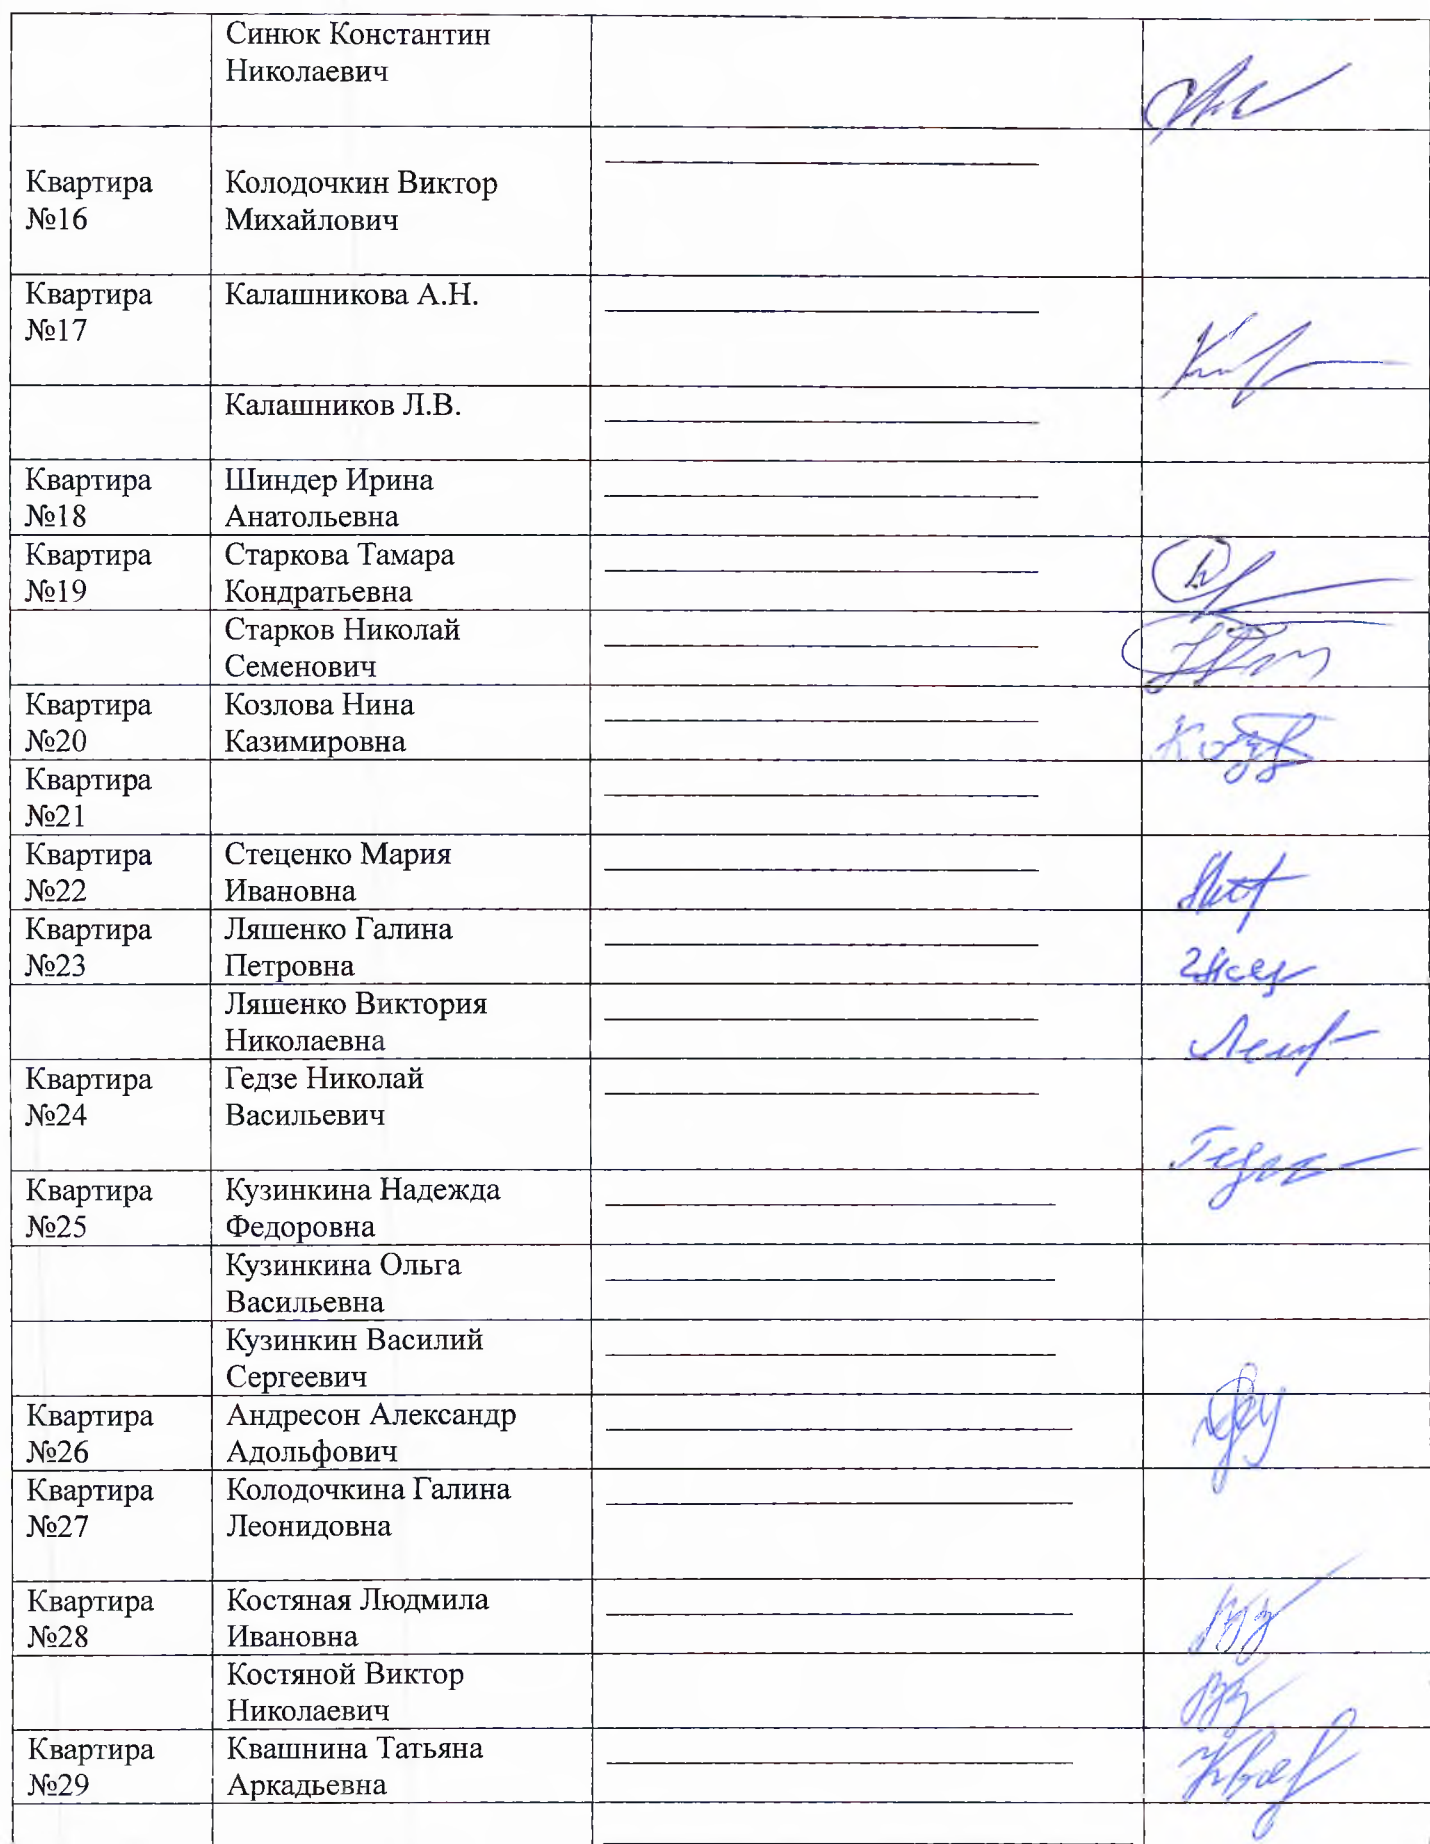 Синюк Константин
Николаевич
Квартира
№16
Колодочкин Виктор
Михайлович
Квартира
№17
Калашникова А.Н.
Калашников Л.В.
Квартира
№18
Шиндер Ирина
Анатольевна
Квартира
№19
Старкова Тамара
Кондратьевна
Старков Николай
Семенович
Квартира
№20
Козлова Нина
Казимировна
Квартира
№21
Квартира
№22
Стеценко Мария
Ивановна
Квартира
№23
Ляшенко Галина
Петровна
Ляшенко Виктория
Николаевна
Квартира
№24
Гедзе Николай
Васильевич
Квартира
№25
Кузинкина Надежда
Федоровна
Кузинкина Ольга
Васильевна
Кузинкин Василий
Сергеевич
Квартира
№26
Андресон Александр
Адольфович
Квартира
№27
Колодочкина Галина
Леонидовна
Квартира
№28
Костяная Людмила
Ивановна
Костяной Виктор
Николаевич
Квартира
№29
Квашнина Татьяна
Аркадьевна